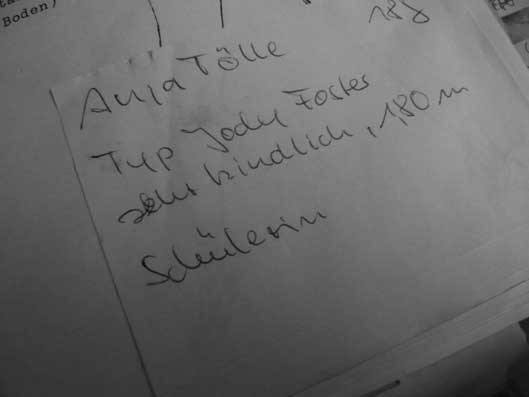 Boden)
Anja Tölle 18j
Typ Jody Foster
sehr kindlich, 180 m
Schülerin